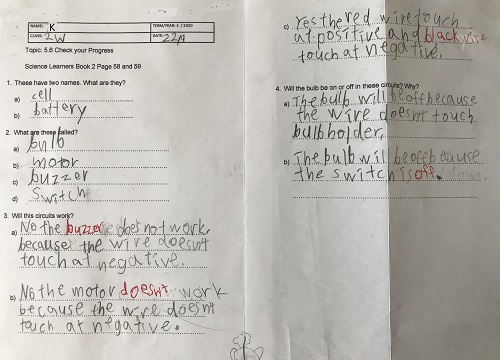 NAME: K
TERM/YEAR: 3 / 2020
CLASS: 2W
DATE: 22A
Topic: 5.6 Check your Progress
Science Learners Book 2 Page 58 and 59
1. These have two names. What are they?
a) cell
b) battery
2. What are these called?
a) bulb
b) motor
c) buzzer
d) switch
3. Will this circuits work?
a) No the buzzer does not work,
because the wire doesn't
touch at negative.
b) No the motor doesn't work
because the wire doesn't
touch at negative.
c) Yes the red wire touch
at positive and black wire
touch at negative.
4. Will the bulb be on or off in these circuits? Why?
a) The bulb will be off because
the wire doesn't touch
bulb holder,
b) The bulb will be off because
the switch is off.